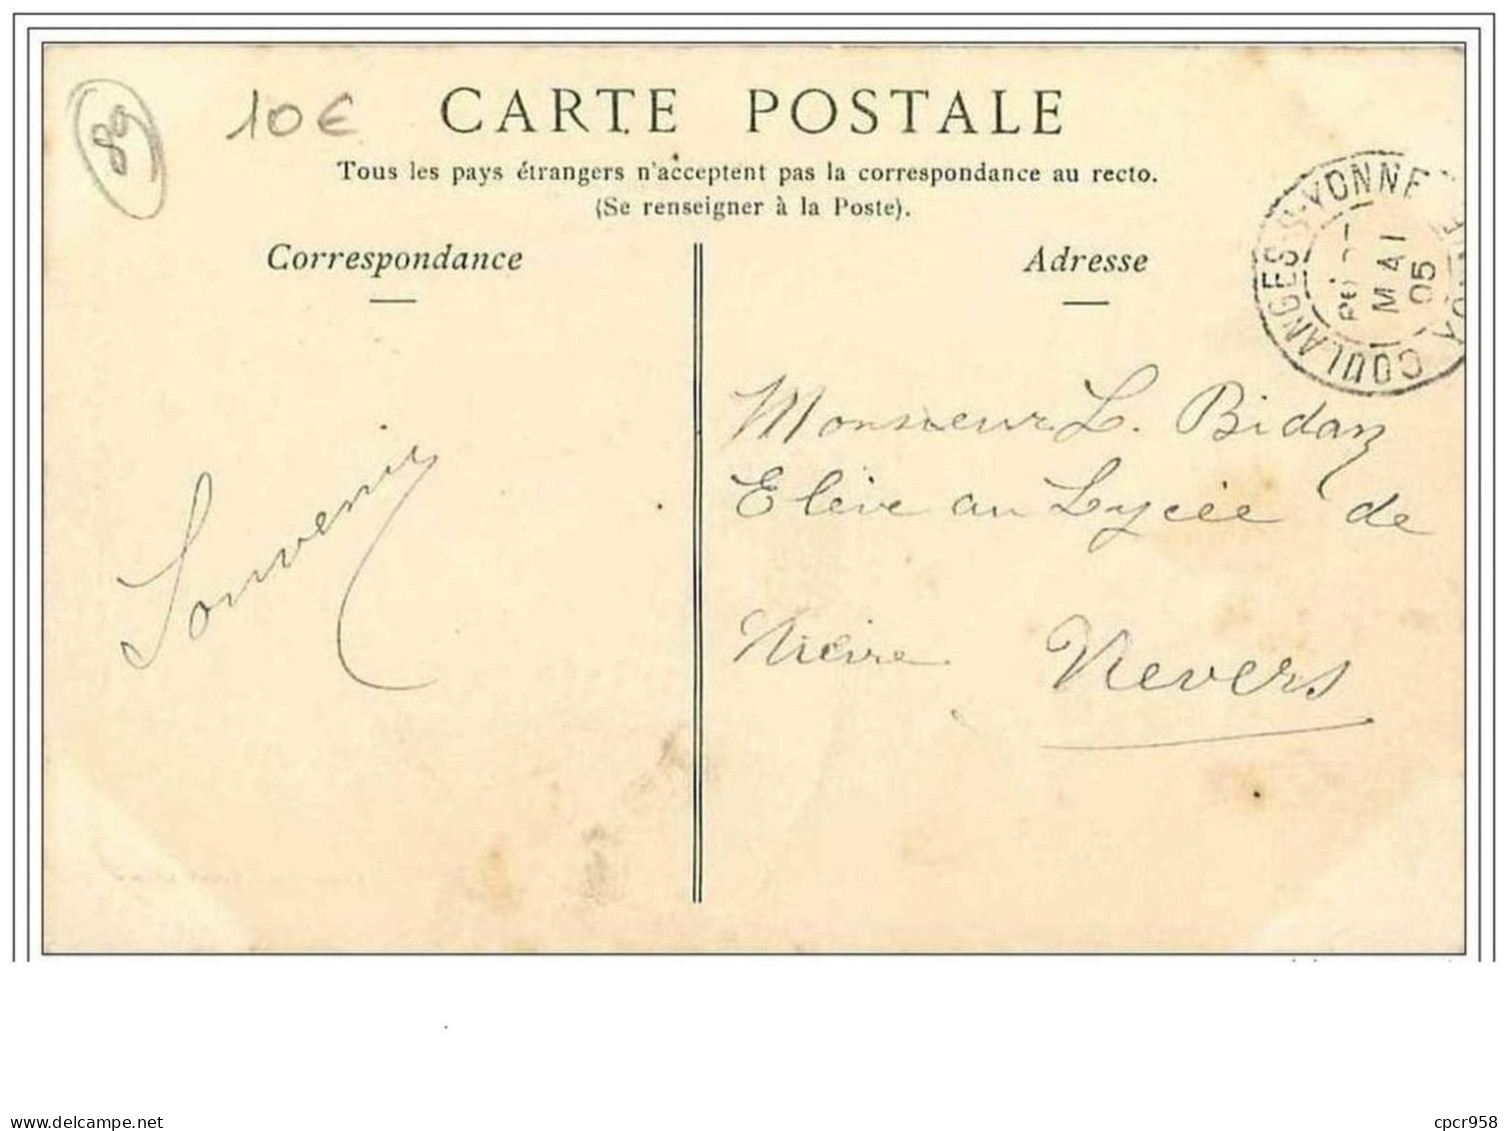 89
10€
CARTE POSTALE
Tous les pays étrangers n'acceptent pas la correspondance au recto.
(Se renseigner à la Poste).
Correspondance
Adresse
COULANGES-S-YONNE
YONNE
MAI
05
Souvenir
Monsieur L. Bidan
Elève au Lycée de
Nevers
delcampe.net
cpcr958